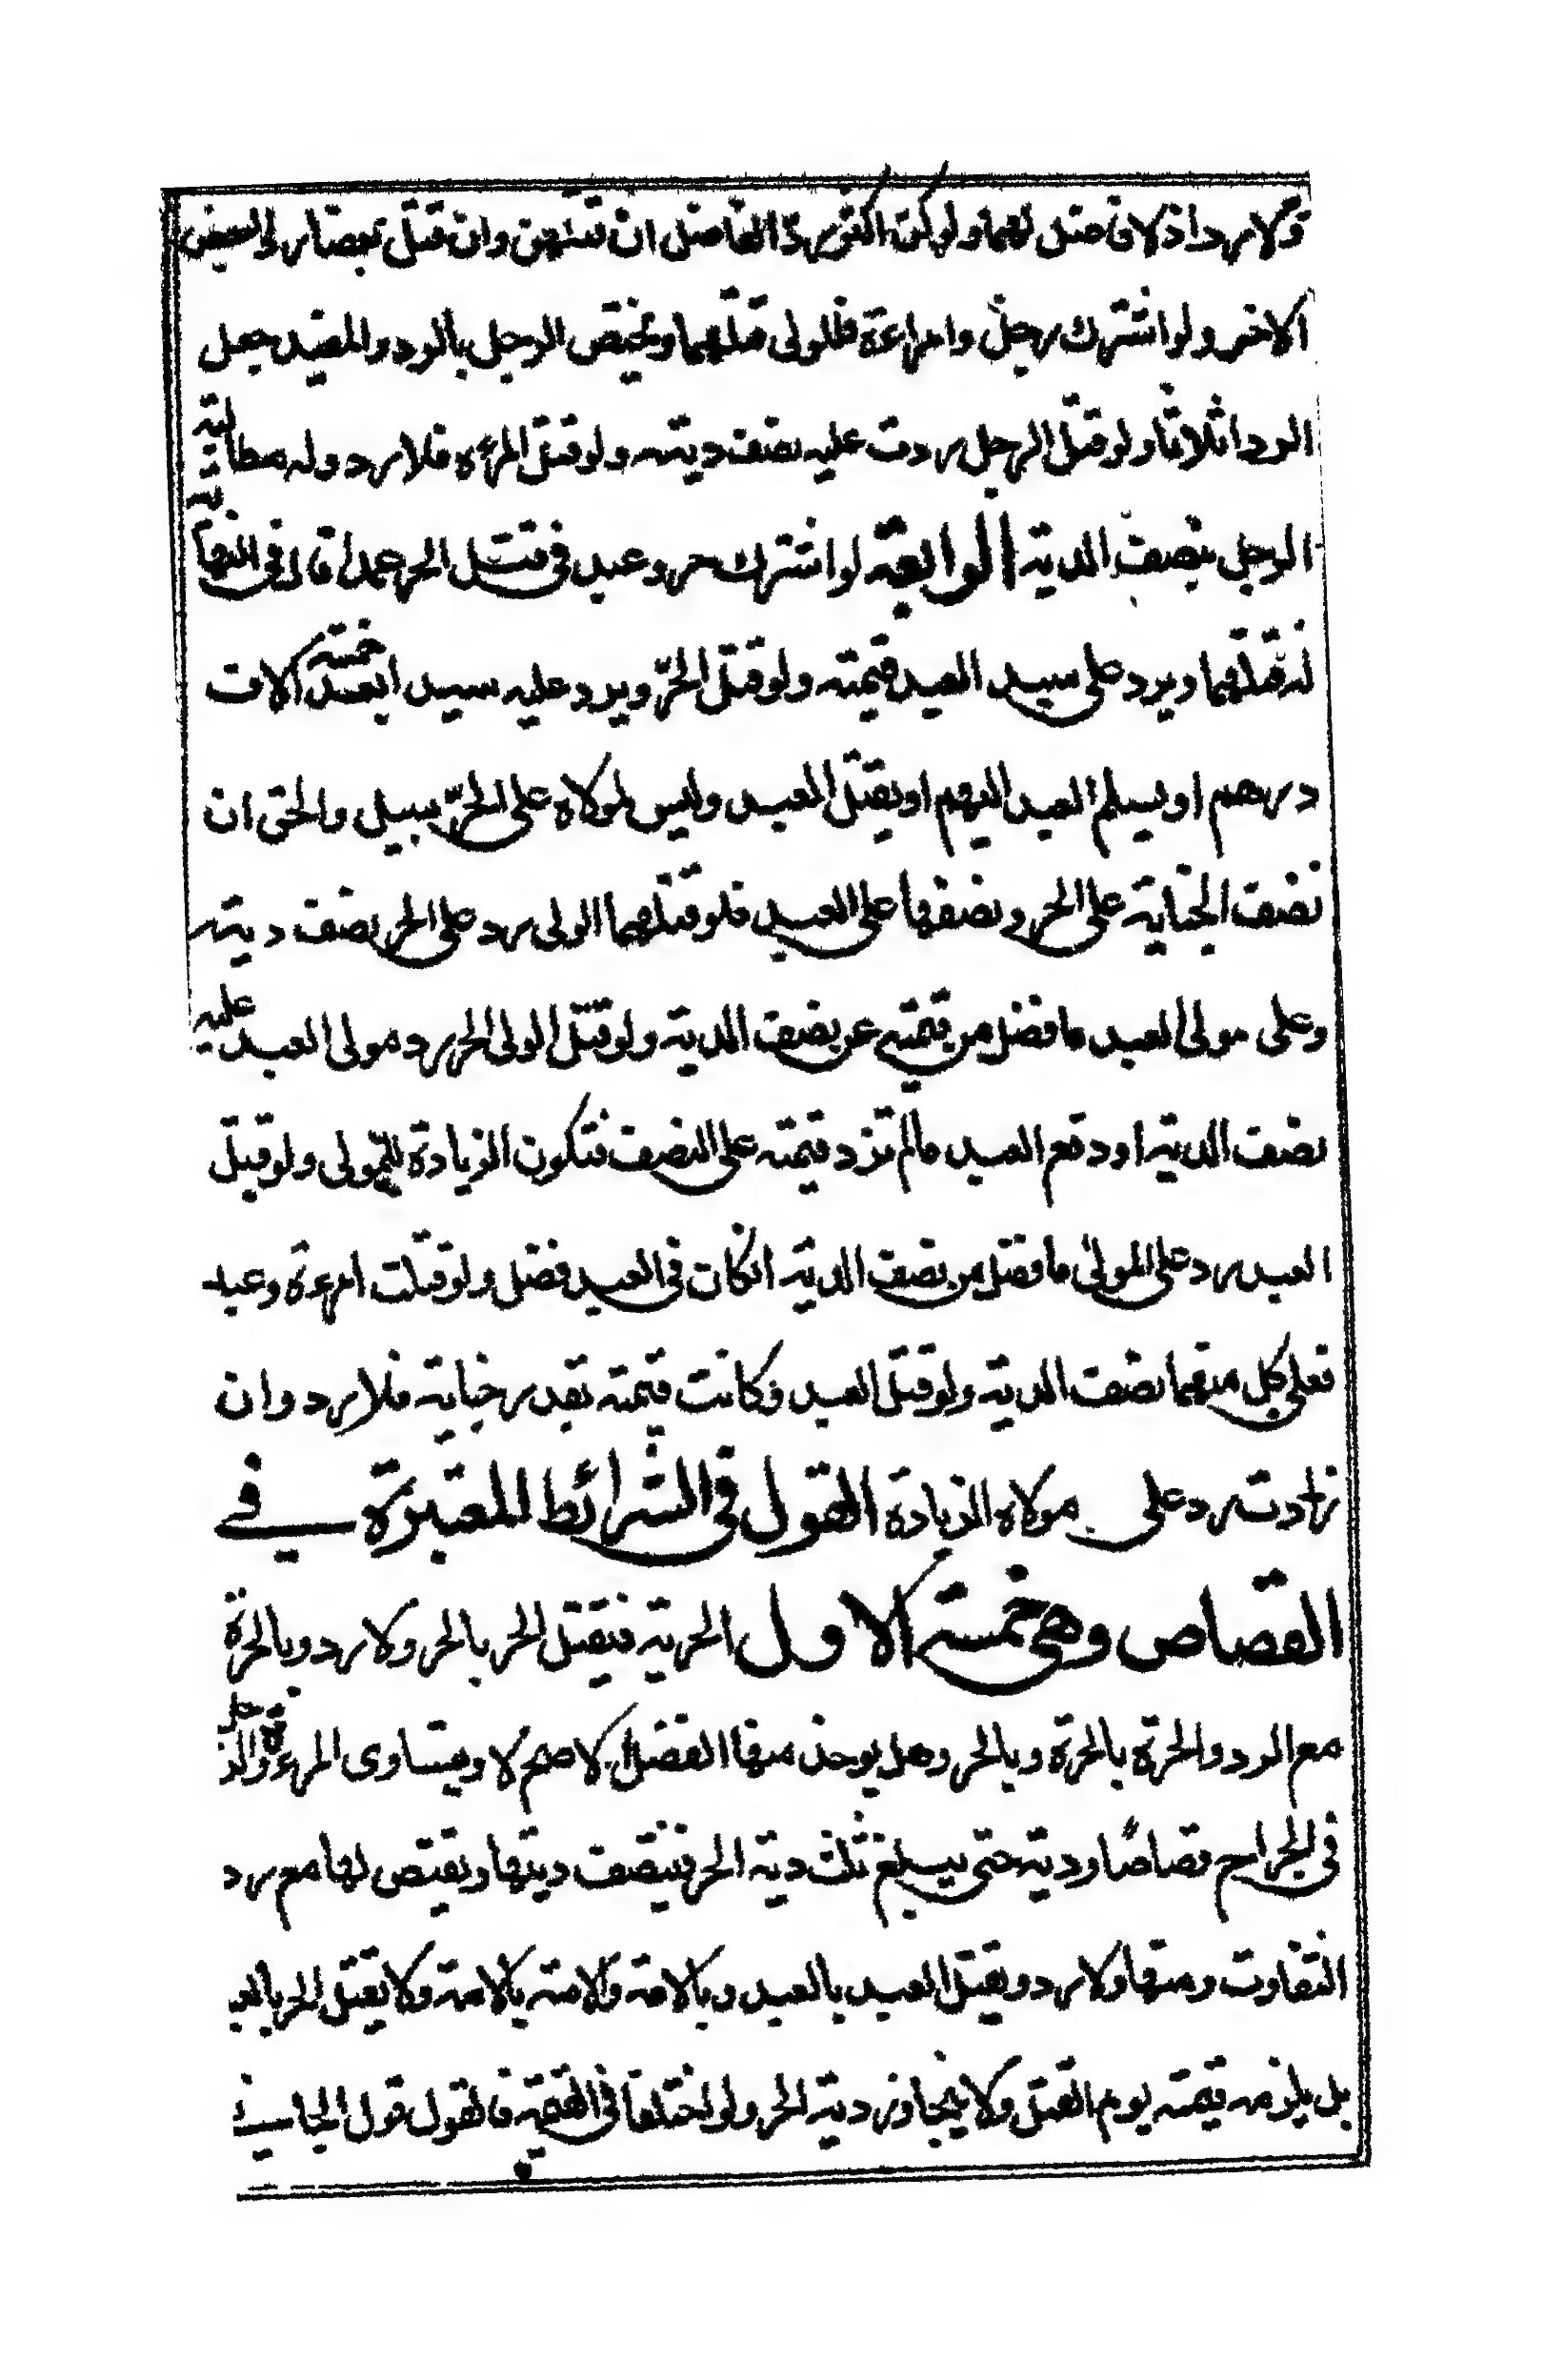 ولا رد اذ لا فاضل لهما ولو كن اكثر رد الفاضل ان قتلهن وان قتل بعضا رد البعض
الاخر ولو اشترك رجل وامراءة فللولى قتلهما ويختص الرجل بالرد والمفيد جعل
الرد اثلاثا ولو قتل الرجل ردت عليه نصف ديته ولو قتل المرءه فلا رد وله مطالبته
الرجل بنصف الدية الرابعة لو اشترك حر وعبد فى قتل الحر عمدا قال فى النهاية
له قتلهما ويرد على سيد العبد قيمته ولو قتل الحر ويرد عليه سيد العبد خمسة آلاف
درهم او يسلم العبد اليهم او يقتل العبد وليس لمولاه على الحر سبيل والحق ان
نصف الجناية على الحر ونصفها على العبد فلو قتلهما الولى رد على الحر نصف ديته
وعلى مولى العبد ما فضل من قيمته عن نصف الدية ولو قتل الولى الحر رد مولى العبد عليه
نصف الدية او دفع العبد ما لم تزد قيمته على النصف فتكون الزيادة للمولى ولو قتل
العبد رد على المولى ما فضل من نصف الدية انكان فى العبد فضل ولو قتلت امرءة وعبد
فعلى كل منهما نصف الدية ولو قتل العبد وكانت قيمته بقدر جنايته فلا رد وان
زادت رد على مولاه الزيادة القول فى الشرائط المعتبرة فے
القصاص وهى خمسة الاول الحرية فيقتل الحر بالحر ولا رد وبالحرة
مع الرد والحرة بالحرة وبالحر وهل يوخذ منها الفضل الاصح لا ويتساوى المرءة والرجل
فى الجراح قصاصا ودية حتى يبلغ ثلث دية الحر فينصف ديتها ويقتص لها مع رد
التفاوت ومنها ولا رد ويقتل العبد بالعبد وبالامة والامة بالامة ولا يقتل الحر بالعبد
بل يلزمه قيمته يوم القتل ولا يتجاوز دية الحر ولو اختلفا فى القيمة فالقول قول الجانے